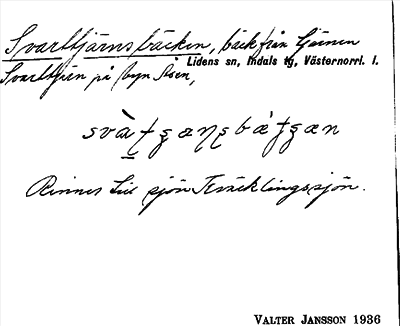 Svarttjärnsbäcken, bäck från tjärnen
Lidens sn, Indals tg, Västernorrl. l.
Svarttjärn på byn Åsen,
Rinner till sjön
VALTER JANSSON 1936